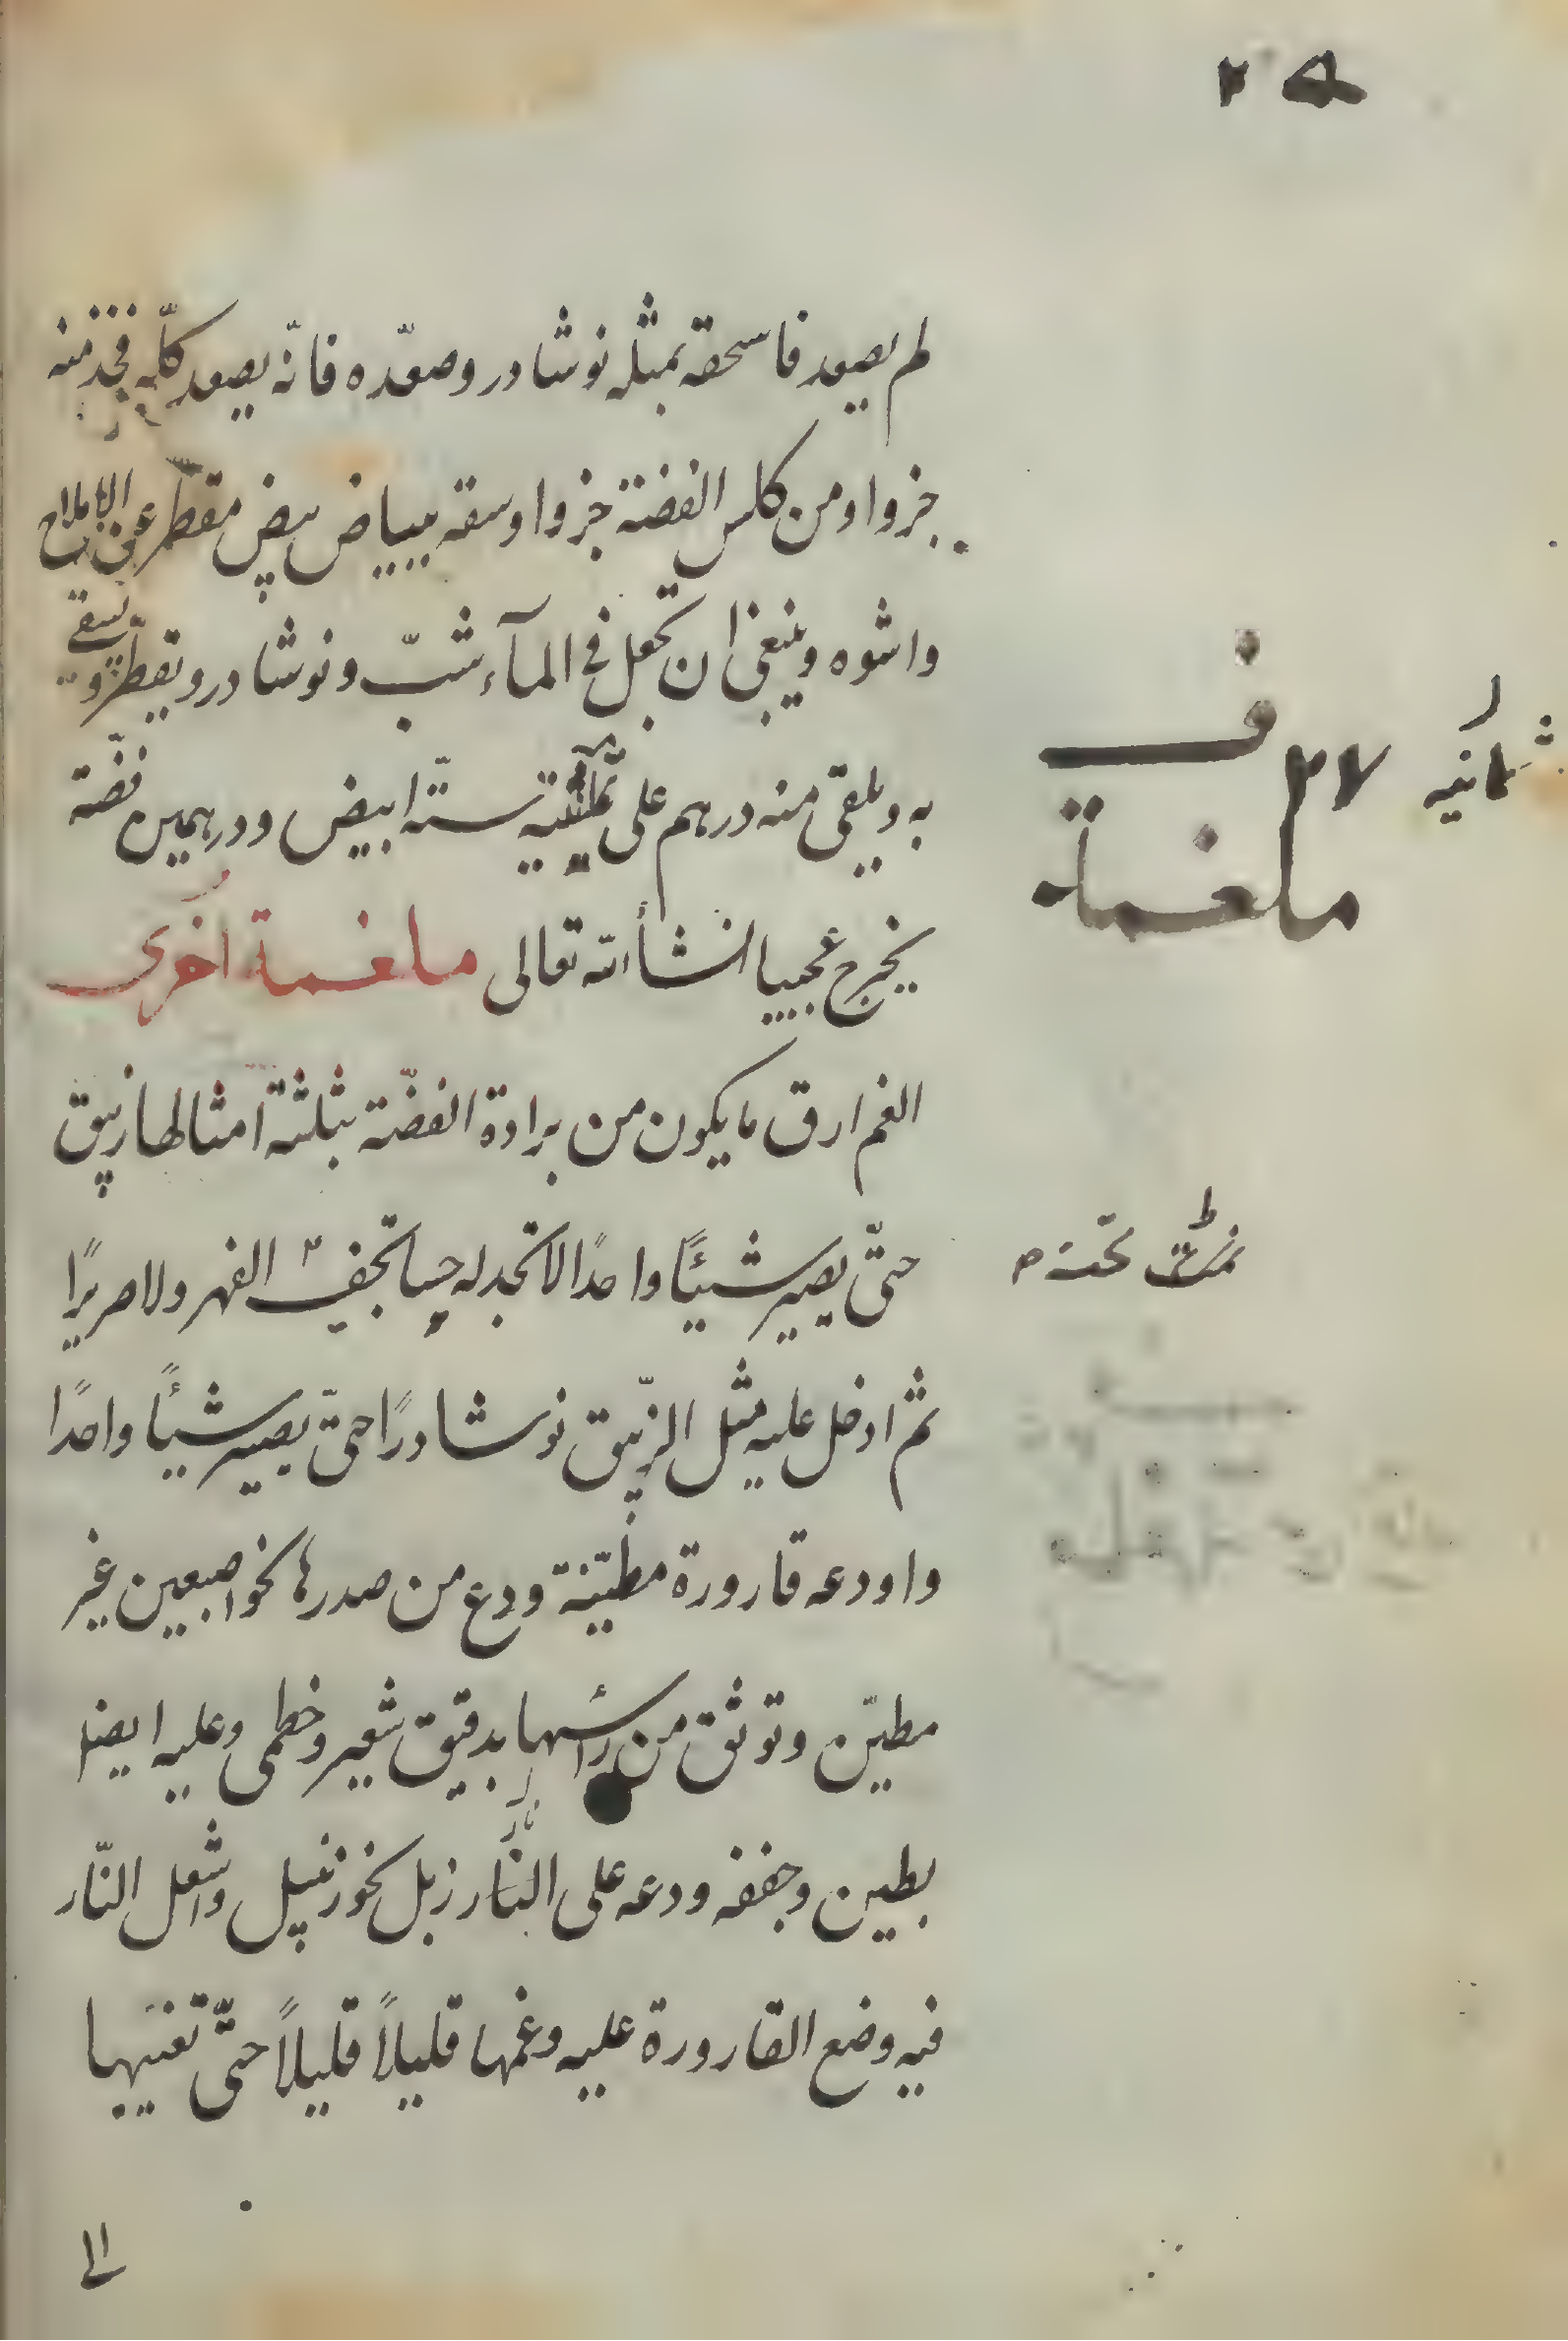 لم يصعد فاسحقه بمثله نوشادر وصعّده فانّه يصعد كلّه فخذ منه
جزوا ومن كلس الفضة جزوا وسقه ببياض بيض مقطّر عن الاملاح
واشوه وينبغى ان تجعل فى المآء شبّ ونوشادر ويقطّر ويسقى
به ويلقى منه درهم على ستّة ابيض ودرهمين فضّة
يخرج عجيبا انشأ الله تعالى ملغمة اخرى
الغم ارق ما يكون من برادة الفضّة بثلثة امثالها زيبق
حتّى يصير شيئًا واحدًا لا تجد له حسا تحت الفهر ولا صريرًا
ثم ادخل عليه مثل الزّيبق نوشادرًا حتّى يصير شيئًا واحدًا
واودعه قارورة مطيّنة ودع من صدرها نحو اصبعين غير
مطيّن وتوثق من رأسها بدقيق شعير وخطمى وعليه ايضا
بطين وجففه ودعه على النّار زبل نحو زنبيل واشعل النّار
فيه وضع القارورة عليه وغمها قليلاً قليلاً حتّى تغيبها
الى
ف
٢٧
ملغمة
ثمانيه
تحته